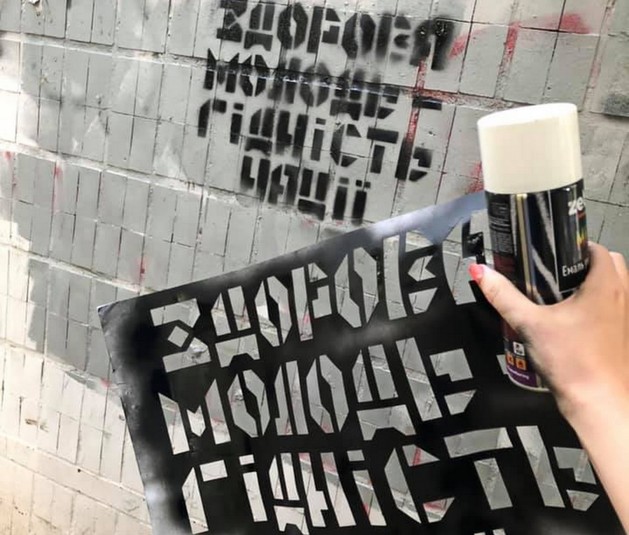 ЗДОРОВЯ
МОЛОДЕ –
ГІДНІСТЬ
НАЦІЇ
ЗДОРОВЯ
МОЛОДЕ
ГІДНІСТЬ